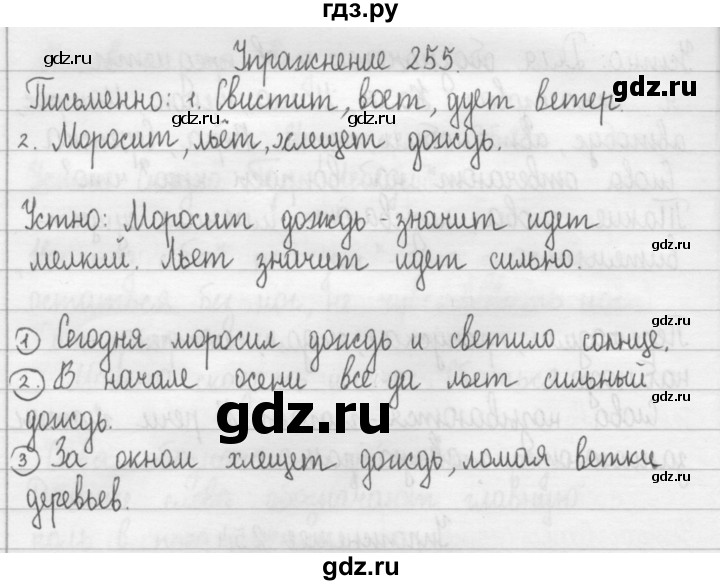 гдз.ру
Упражнение 255.
Письменно: 1. Свистит, воет, дует ветер.
2. Моросит, льёт, хлещет дождь.
Устно: Моросит дождь - значит идет
мелкий. Льет значит идет сильно.
1 Сегодня моросил дождь и светило солнце.
2. В начале осени все да льет сильный
дождь.
3 За окном хлещет дождь, ломая ветки
деревьев.
gdz.ru
gdz.ru
gdz.ru
gdz.ru
gdz.ru
gdz.ru
gdz.ru
gdz.ru
gdz.ru
gdz.ru
gdz.ru
gdz.ru
gdz.ru